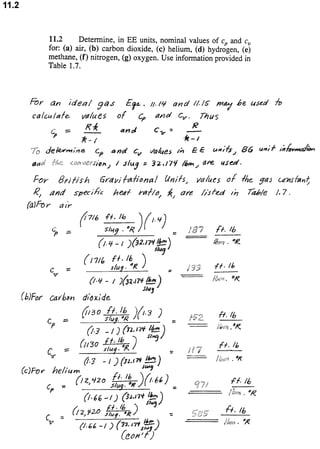 11.2
11.2 Determine, in EE units, nominal values of c_p and c_v
for: (a) air, (b) carbon dioxide, (c) helium, (d) hydrogen, (e)
methane, (f) nitrogen, (g) oxygen. Use information provided in
Table 1.7.
For an ideal gas Eqs. 11.14 and 11.15 may be used to
calculate values of c_p and c_v. Thus
c_p = Rk / (k-1) and c_v = R / (k-1)
To determine c_p and c_v values in EE units, BG unit information
and the conversion, 1 slug = 32.174 lbm, are used.
For British Gravitational Units, values of the gas constant,
R, and specific heat ratio, k, are listed in Table 1.7.
(a) For air
c_p = (1716 ft. lb / slug. °R)(1.4) / (1.4 - 1)(32.174 lbm / slug) = 187 ft. lb / lbm. °R
c_v = (1716 ft. lb / slug. °R) / (1.4 - 1)(32.174 lbm / slug) = 133 ft. lb / lbm. °R
(b) For carbon dioxide
c_p = (1130 ft. lb / slug. °R)(1.3) / (1.3 - 1)(32.174 lbm / slug) = 152 ft. lb / lbm. °R
c_v = (1130 ft. lb / slug. °R) / (1.3 - 1)(32.174 lbm / slug) = 117 ft. lb / lbm. °R
(c) For helium
c_p = (12,420 ft. lb / slug. °R)(1.66) / (1.66 - 1)(32.174 lbm / slug) = 971 ft. lb / lbm. °R
c_v = (12,420 ft. lb / slug. °R) / (1.66 - 1)(32.174 lbm / slug) = 585 ft. lb / lbm. °R
(con't)